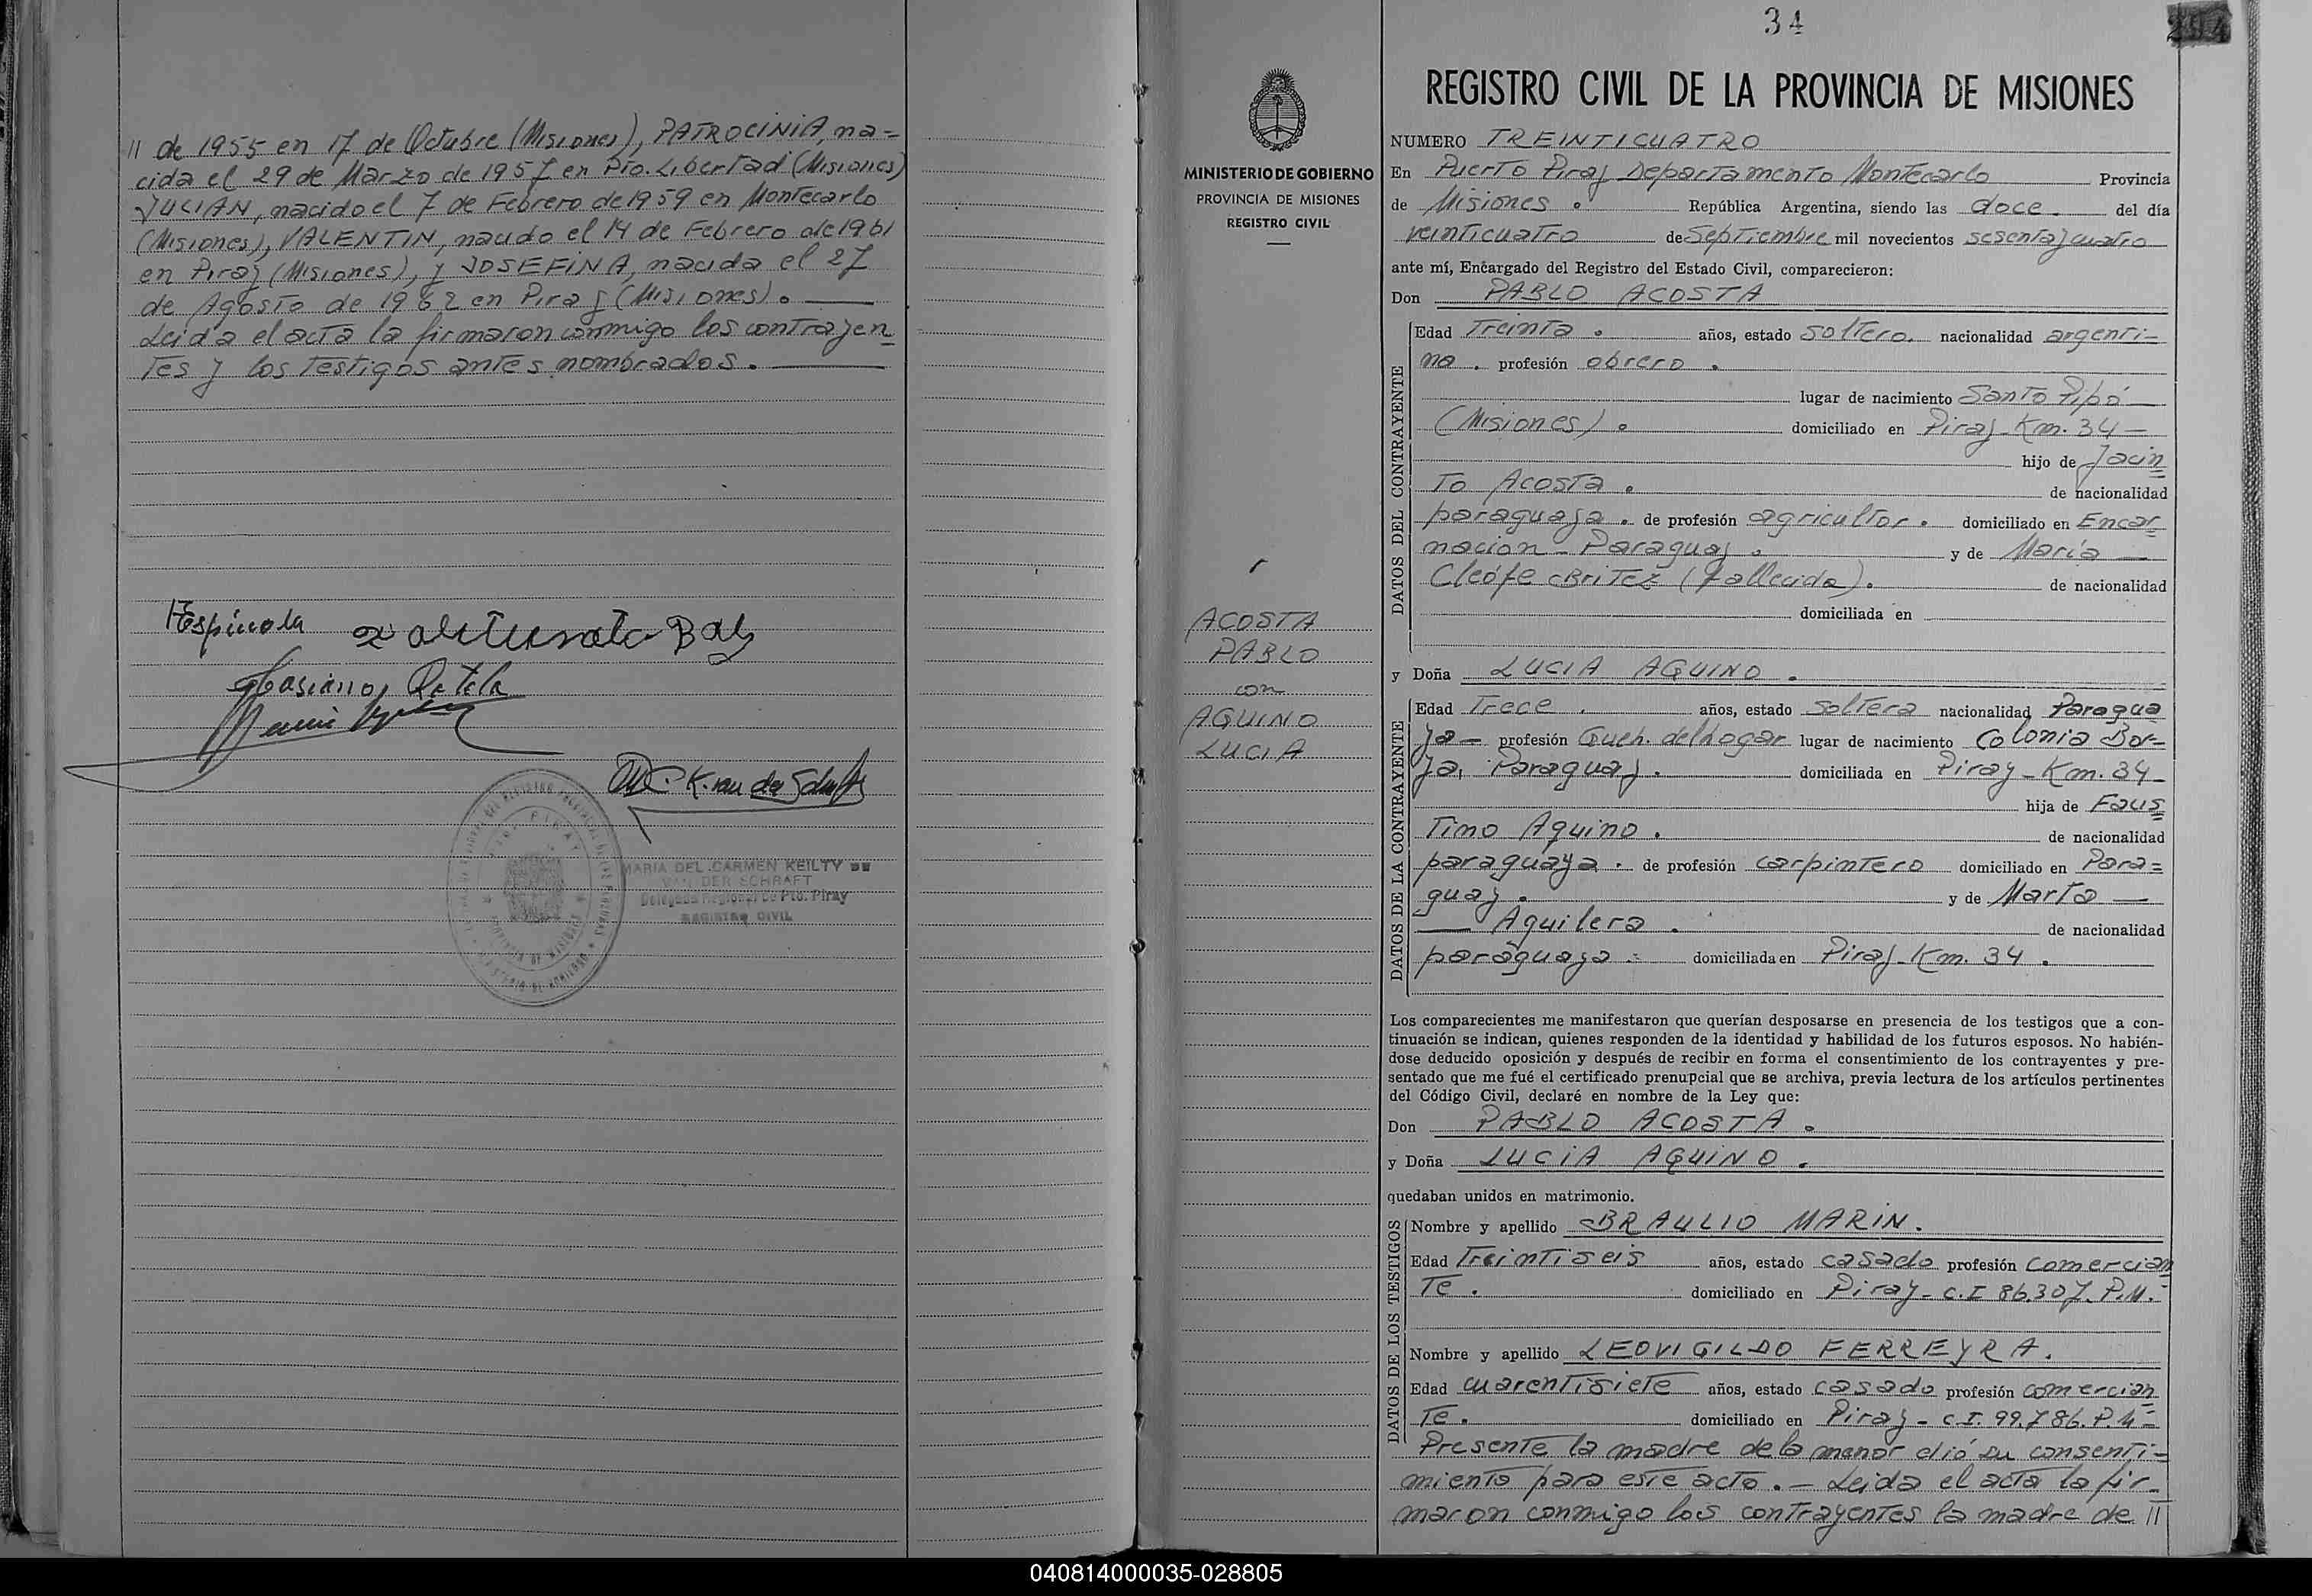 11 de 1955 en 17 de Octubre (Misiones), PATROCINIA, na=
cida el 29 de Marzo de 1957 en Pto. Libertad (Misiones)
JULIAN, nacido el 7 de Febrero de 1959 en Montecarlo
(Misiones), VALENTIN, nacido el 14 de Febrero de 1961
en Piray (Misiones), y JOSEFINA, nacida el 27
de Agosto de 1962 en Piray (Misiones).
Leida el acta la firmaron conmigo los contrayen
tes y los testigos antes nombrados.
Espinola
K. van der Schraft
MARIA DEL CARMEN KEILTY DE
VAN DER SCHRAFT
Delegada Regional de Pto. Piray
REGISTRO CIVIL
MINISTERIO DE GOBIERNO
PROVINCIA DE MISIONES
REGISTRO CIVIL
ACOSTA
PABLO
con
AQUINO
LUCIA
34
294
REGISTRO CIVIL DE LA PROVINCIA DE MISIONES
NUMERO TREINTICUATRO
En Puerto Piray Departamento Montecarlo Provincia
de Misiones. República Argentina, siendo las doce. del día
veinticuatro de Septiembre mil novecientos sesenta y cuatro
ante mí, Encargado del Registro del Estado Civil, comparecieron:
Don PABLO ACOSTA
DATOS DEL CONTRAYENTE
Edad Treinta. años, estado soltero. nacionalidad argenti-
na. profesión obrero.
lugar de nacimiento Santo Pipó
(Misiones). domiciliado en Piray-Km. 34-
hijo de Jacin
to Acosta. de nacionalidad
paraguaya. de profesión agricultor. domiciliado en Encar
nacion-Paraguay. y de María
Cleófe Britez (fallecida). de nacionalidad
domiciliada en
y Doña LUCIA AQUINO.
DATOS DE LA CONTRAYENTE
Edad Trece. años, estado soltera nacionalidad Paragua
ya- profesión Queh. del hogar lugar de nacimiento Colonia Bor-
ja, Paraguay. domiciliada en Piray-Km. 34-
hija de Faus
tino Aquino. de nacionalidad
paraguaya. de profesión carpintero domiciliado en Para=
guay. y de Marta
Aquilera. de nacionalidad
paraguaya. domiciliada en Piray-Km. 34.
Los comparecientes me manifestaron que querían desposarse en presencia de los testigos que a con-
tinuación se indican, quienes responden de la identidad y habilidad de los futuros esposos. No habién-
dose deducido oposición y después de recibir en forma el consentimiento de los contrayentes y pre-
sentado que me fué el certificado prenupcial que se archiva, previa lectura de los artículos pertinentes
del Código Civil, declaré en nombre de la Ley que:
Don PABLO ACOSTA.
y Doña LUCIA AQUINO.
quedaban unidos en matrimonio.
DATOS DE LOS TESTIGOS
Nombre y apellido BRAULIO MARIN.
Edad Treintiseis años, estado casado profesión comercian
te. domiciliado en Piray-C.I 86.307. P.M.-
Nombre y apellido LEOVIGILDO FERREYRA.
Edad cuarentisiete años, estado casado profesión comercian
te. domiciliado en Piray-C.I. 99.786. P.M-
Presente la madre de la menor dió su consenti-
miento para este acto.- Leida el acta la fir-
maron conmigo los contrayentes la madre de //
040814000035-028805